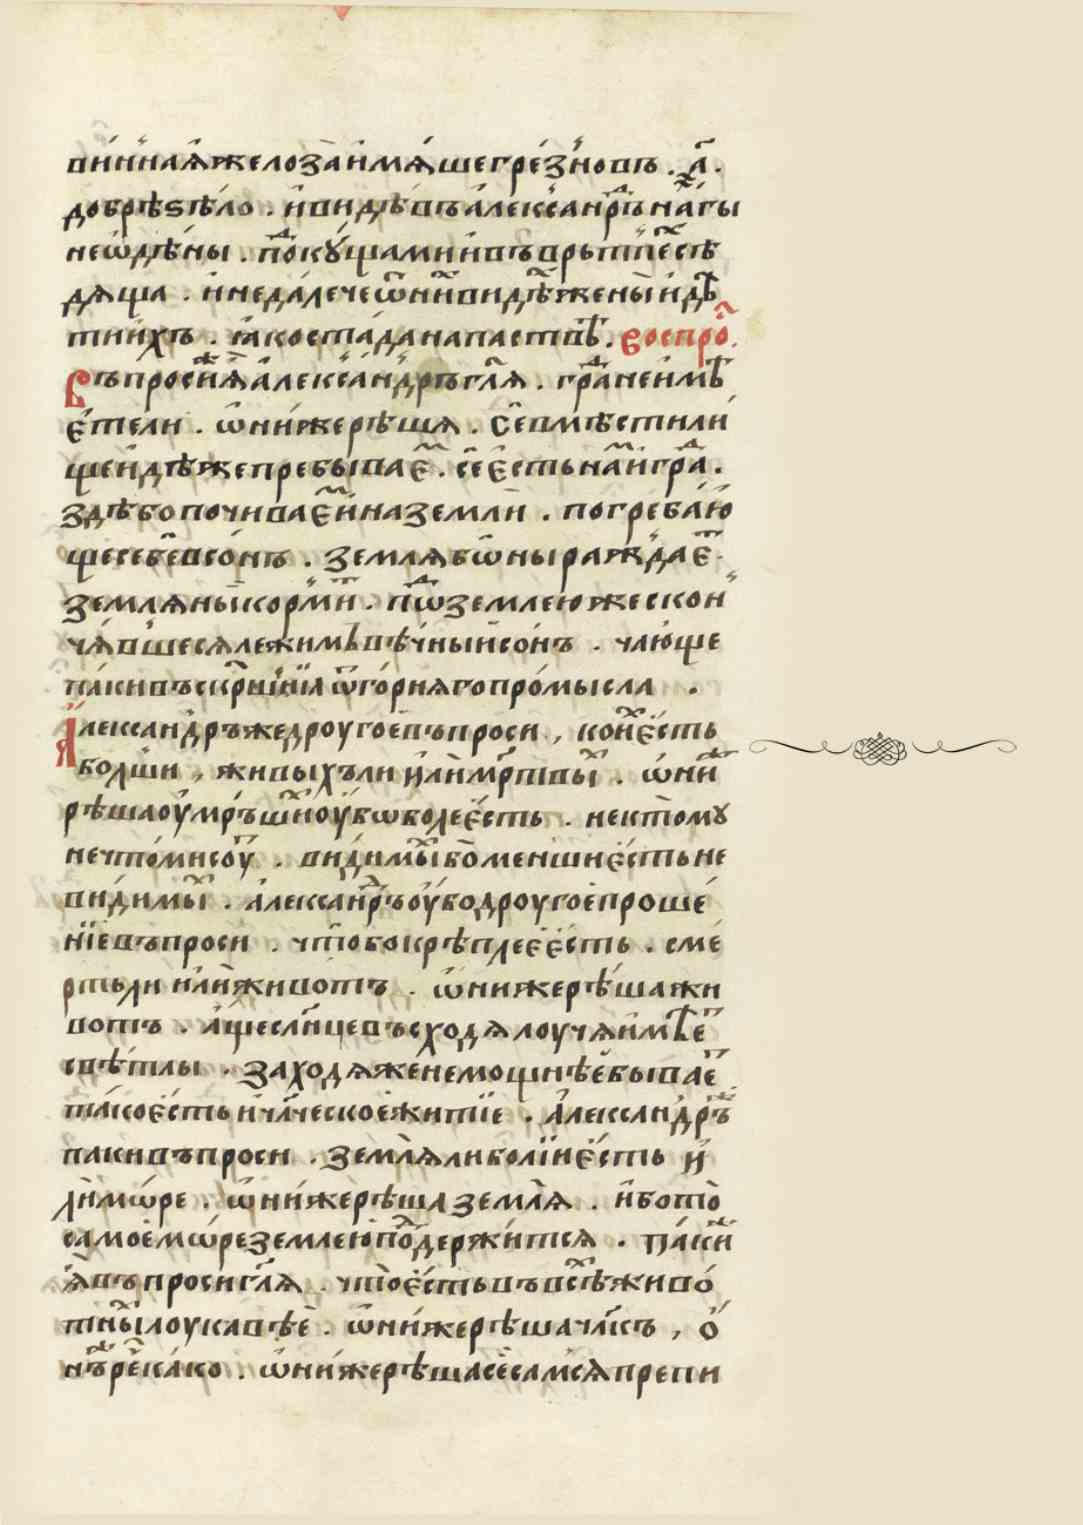 винная же лоза имяше грезновъ . а҃ .
добрѣ ѕѣло . и видѣвъ алеѯандръ нагы
не ѡдѣны . под кꙋщами и въ врътпех сѣ
дяща . и недалече ѿ них видѣ жены и дѣ
ти ихъ . ꙗко стада на паствѣ . воспро.
Въпроси я алеѯандръ гл҃я . град не имѣ
ете ли . ѡни же рѣшя . се вмѣстили
ще идѣже пребываем . се есть нам и град .
здѣ бо почиваем и на земли . погребаю
ще себе в сонъ . земля бо ны раждает .
земля ны и кормит . под землею же скон
чявшеся лежимъ вѣчныи сонъ . чающе
паки въскрниіа ѿ горняго промысла .
Алеѯандръ же дроугое въпроси , коих есть
болши , живых ъли или мрътвых . ѡни ж
рѣша оумръших оубѡ более есть . не к тому
нечто ми соут . видимых бо менши есть не
видимых . алеѯандръ оубо дроугое проше
ніе въпроси . что бо крѣплее есть . сме
рть ли или животъ . ѡни же рѣша жи
вотъ . аще сл҃нце въсходя лоучя имѣет
свѣтлы . заходя же немощнѣе бывает
тако есть и чл҃ческое житіе . алеѯандръ ж
паки въпроси . земля ли боліи есть и
ли мѡре . ѡни же рѣша земля . ибо то
само е мѡре землею подержится . паки ж
я въпроси гл҃я . что есть въ всѣх живо
тных лоукавѣе . ѡни же рѣша чл҃къ , о
нъ ж рече како . ѡни же рѣша се самся препи